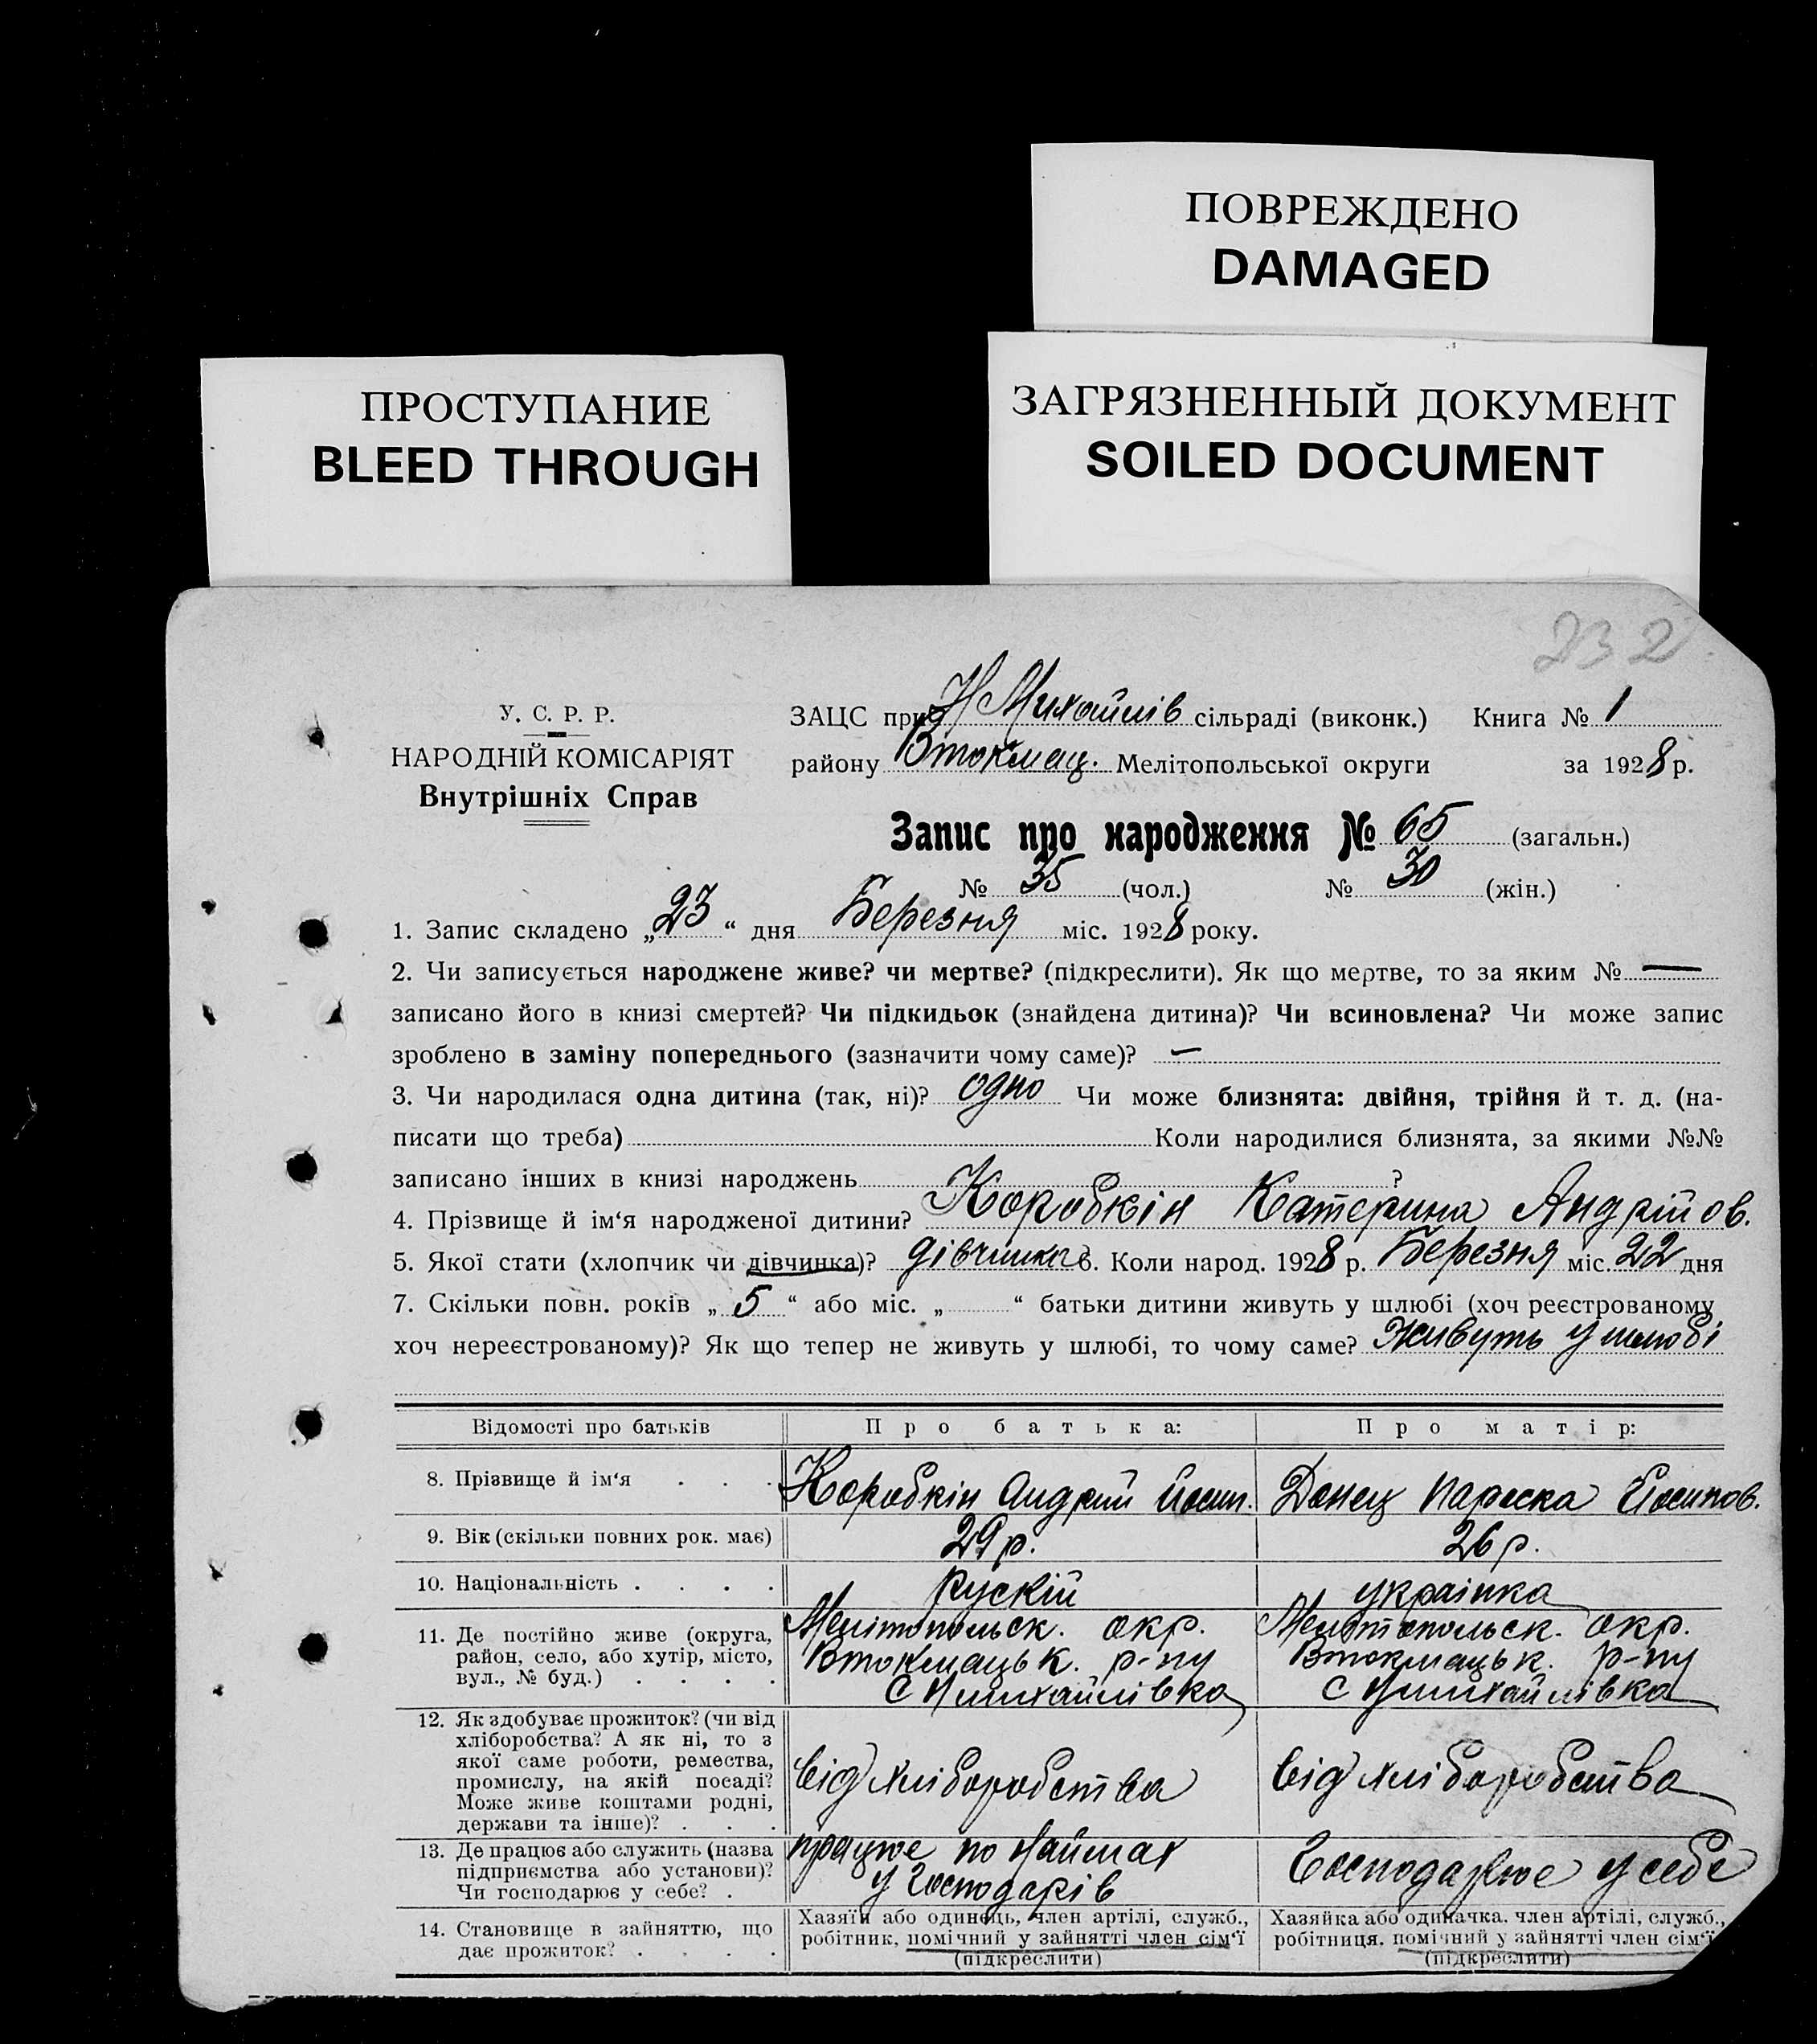 ПОВРЕЖДЕНО
DAMAGED
ПРОСТУПАНИЕ
BLEED THROUGH
ЗАГРЯЗНЕННЫЙ ДОКУМЕНТ
SOILED DOCUMENT
232
У. С. Р. Р.
НАРОДНІЙ КОМІСАРІЯТ
Внутрішніх Справ
ЗАЦС при Н Михайлів сільраді (виконк.) Книга № 1
району Втокмац. Мелітопольської округи за 1928 р.
Запис про народження № 65 (загальн.)
№ 35 (чол.) № 30 (жін.)
1. Запис складено „23“ дня Березня міс. 1928 року.
2. Чи записується народжене живе? чи мертве? (підкреслити). Як що мертве, то за яким № —
записано його в книзі смертей? Чи підкидьок (знайдена дитина)? Чи всиновлена? Чи може запис
зроблено в заміну попереднього (зазначити чому саме)? —
3. Чи народилася одна дитина (так, ні)? одно Чи може близнята: двійня, трійня й т. д. (на-
писати що треба) Коли народилися близнята, за якими №№
записано інших в книзі народжень ?
4. Прізвище й ім‘я народженої дитини? Коробкін Катерина Андрійов.
5. Якої стати (хлопчик чи дівчинка)? дівчинка 6. Коли народ. 1928 р. Березня міс. 22 дня
7. Скільки повн. років „5“ або міс. „ “ батьки дитини живуть у шлюбі (хоч реєстрованому
хоч нереєстрованому)? Як що тепер не живуть у шлюбі, то чому саме? Живуть у шлюбі
Відомості про батьків Про батька: Про матір:
8. Прізвище й ім‘я . . . Коробкін Андрий Йосип. Донец Параска Йосипов.
9. Вік (скільки повних рок. має) 29 р. 26 р.
10. Національність . . . . Рускій українка
11. Де постійно живе (округа, Мелітопольск. окр. Мелітопольск. окр.
район, село, або хутір, місто, Втокмацьк. р-ну Втокмацьк. р-ну
вул., № буд.) . . . . С Нмихайлівка С Нмихайлівка
12. Як здобуває прожиток? (чи від
хліборобства? А як ні, то з
якої саме роботи, ремества,
промислу, на якій посаді? від хліборобства від хліборобства
Може живе коштами родні,
держави та інше)? . . .
13. Де працює або служить (назва працює по Наймах
підприємства або установи)? у Господарів Господарює у себе
Чи господарює у себе? .
14. Становище в зайняттю, що Хазяїн або одинець, член артілі, служб., Хазяйка або одиначка, член артілі, служб.,
дає прожиток? . . . . робітник, помічний у зайнятті член сім‘ї робітниця, помічний у зайнятті член сім‘ї
(підкреслити) (підкреслити)